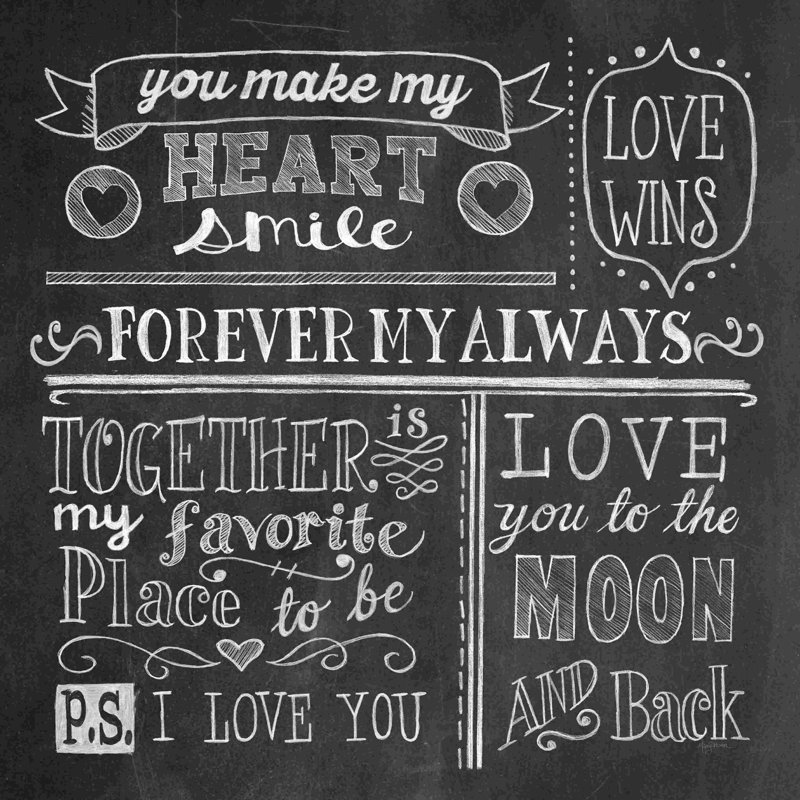 you make my
HEART
smile
LOVE
WINS
FOREVER MY ALWAYS
TOGETHER is
my favorite
Place to be
P.S. I LOVE YOU
LOVE
you to the
MOON
AND Back